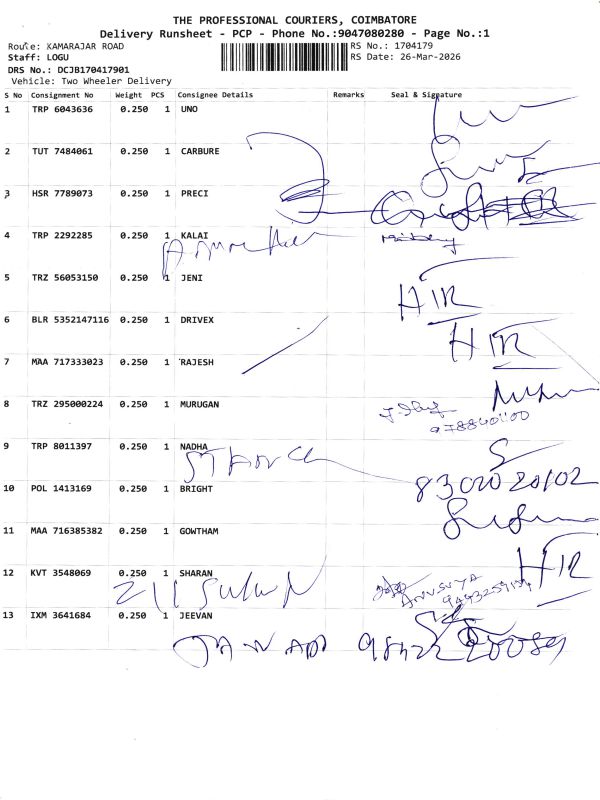 THE PROFESSIONAL COURIERS, COIMBATORE
Delivery Runsheet - PCP - Phone No.:9047080280 - Page No.:1
Route: KAMARAJAR ROAD RS No.: 1704179
Staff: LOGU RS Date: 26-Mar-2026
DRS No.: DCJB170417901
Vehicle: Two Wheeler Delivery
S No Consignment No Weight PCS Consignee Details Remarks Seal & Signature
1 TRP 6043636 0.250 1 UNO
2 TUT 7484061 0.250 1 CARBURE
3 HSR 7789073 0.250 1 PRECI
4 TRP 2292285 0.250 1 KALAI
5 TRZ 56053150 0.250 1 JENI
HIR
6 BLR 5352147116 0.250 1 DRIVEX
HIR
7 MAA 717333023 0.250 1 RAJESH
8 TRZ 295000224 0.250 1 MURUGAN
9 TRP 8011397 0.250 1 NADHA
10 POL 1413169 0.250 1 BRIGHT
11 MAA 716385382 0.250 1 GOWTHAM
HIR
12 KVT 3548069 0.250 1 SHARAN
13 IXM 3641684 0.250 1 JEEVAN